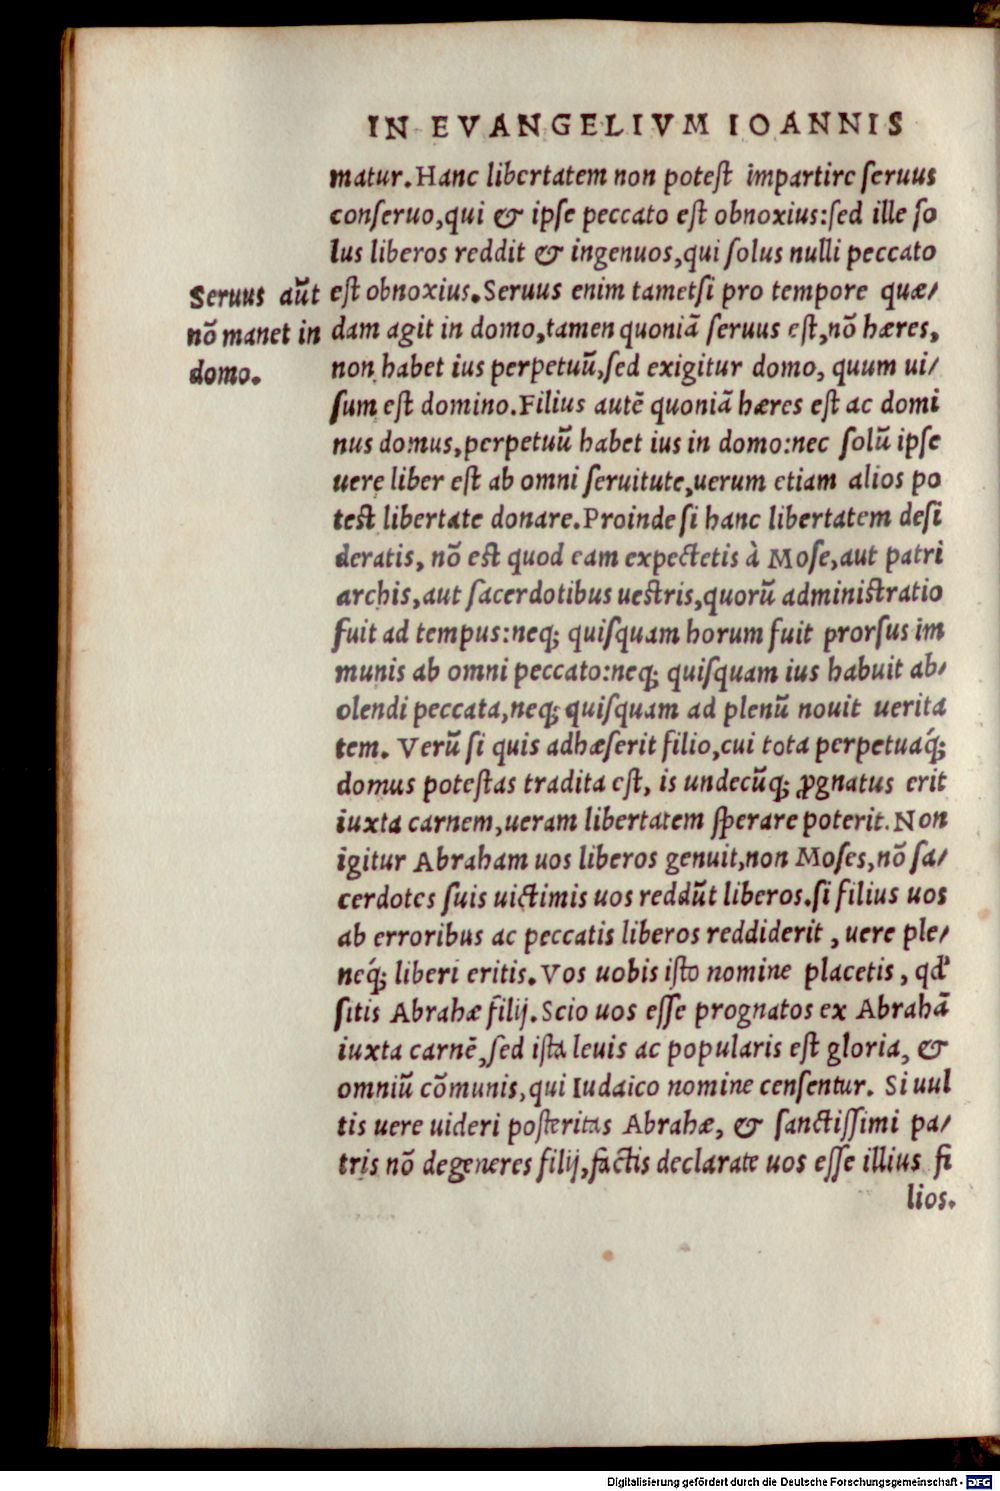 IN EVANGELIVM IOANNIS
matur. Hanc libertatem non potest impartire seruus
conseruo, qui & ipse peccato est obnoxius: sed ille so
lus liberos reddit & ingenuos, qui solus nulli peccato
est obnoxius. Seruus enim tametsi pro tempore quæ/
dam agit in domo, tamen quoniā seruus est, nō hæres,
non habet ius perpetuū, sed exigitur domo, quum ui/
sum est domino. Filius autē quoniā hæres est ac domi
nus domus, perpetuū habet ius in domo: nec solū ipse
uere liber est ab omni seruitute, uerum etiam alios po
test libertate donare. Proinde si hanc libertatem desi
deratis, nō est quod eam expectetis à Mose, aut patri
archis, aut sacerdotibus uestris, quorū administratio
fuit ad tempus: neq; quisquam horum fuit prorsus im
munis ab omni peccato: neq; quisquam ius habuit ab/
olendi peccata, neq; quisquam ad plenū nouit uerita
tem. Verū si quis adhæserit filio, cui tota perpetuaq́;
domus potestas tradita est, is undecūq; ꝓgnatus erit
iuxta carnem, ueram libertatem sperare poterit. Non
igitur Abraham uos liberos genuit, non Moses, nō sa/
cerdotes suis uictimis uos reddūt liberos. si filius uos
ab erroribus ac peccatis liberos reddiderit, uere ple/
neq́; liberi eritis. Vos uobis isto nomine placetis, qđ
sitis Abrahæ filij. Scio uos esse prognatos ex Abrahā
iuxta carnē, sed ista leuis ac popularis est gloria, &
omniū cōmunis, qui Iudaico nomine censentur. Si uul
tis uere uideri posteritas Abrahæ, & sanctissimi pa/
tris nō degeneres filij, factis declarate uos esse illius fi
lios.
Seruus aūt
nō manet in
domo.
Digitalisierung gefördert durch die Deutsche Forschungsgemeinschaft - DFG